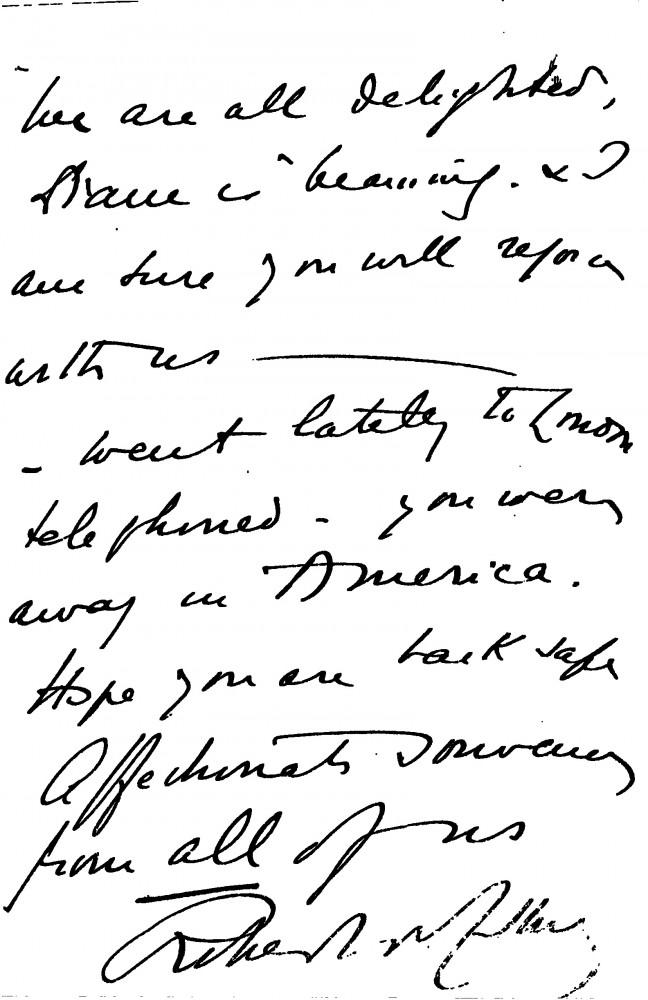 We are all delighted,
Diane is beaming. & I
am sure you will rejoice
with us
- went lately to
telephoned - you were
away in America.
Hope you are back safe
Affectionate
from all of us